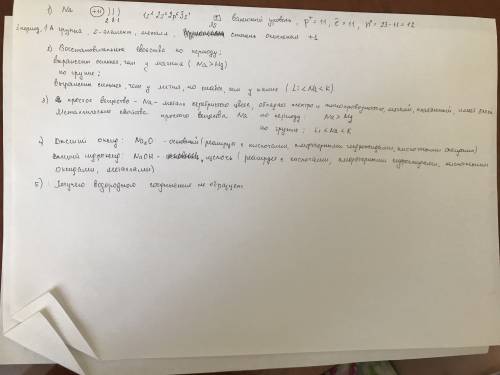 1) Na +11 ) ) ) 1s² 2s² 2p⁶ 3s¹ валент уровень, p⁺ = 11, ē = 11, n⁰ = 23-11 = 12
2 8 1 3s
3 период, 1А группа, s-элемент, металл. степень окисления +1
2) Восстановительные свойства по периоду:
выражены сильнее, чем у магния (Na > Mg)
по группе:
выражены сильнее, чем у лития, но слабее, чем у калия (Li < Na < K)
3) простое вещество - Na - металл серебристого цвета, обладает электро и теплопроводностью, мягкий,
Металлические свойства простого вещества Na по периоду: Na > Mg
по группе: Li < Na < K
4) Высший оксид: Na₂O - основный (реагирует с кислотами, амфотерными гидроксидами, кислотными оксидами)
гидроксид: NaOH - щелочь (реагирует с кислотами, амфотерными гидроксидами, кислотными
оксидами, металлами)
5) Летучего водородного соединения не образует